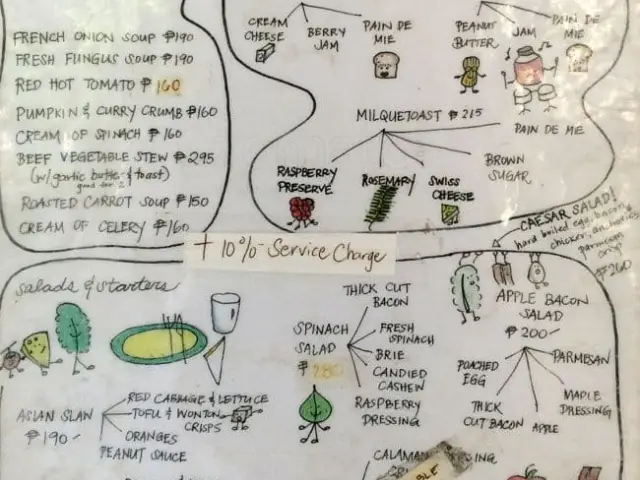 FRENCH ONION SOUP ₱190
FRESH FUNGUS SOUP ₱190
RED HOT TOMATO ₱160
PUMPKIN & CURRY CRUMB ₱160
CREAM OF SPINACH ₱160
BEEF VEGETABLE STEW ₱295
(w/ garlic butter & toast)
good for 2
ROASTED CARROT SOUP ₱150
CREAM OF CELERY ₱160
CREAM
CHEESE
BERRY
JAM
PAIN DE
MIE
PEANUT
BUTTER
JAM
PAIN DE
MIE
MILQUETOAST ₱215
RASPBERRY
PRESERVE
ROSEMARY
SWISS
CHEESE
BROWN
SUGAR
PAIN DE MIE
+ 10% Service Charge
CAESAR SALAD!
hard boiled egg, bacon,
chicken, anchovies
parmesan
crisp
₱260
Salads & starters
ASIAN SLAW
₱190-
RED CABBAGE & LETTUCE
TOFU & WONTON
CRISPS
ORANGES
PEANUT SAUCE
SPINACH
SALAD
₱280
THICK CUT
BACON
FRESH
SPINACH
BRIE
CANDIED
CASHEW
RASPBERRY
DRESSING
APPLE BACON
SALAD
₱200-
POACHED
EGG
THICK
CUT BACON
APPLE
MAPLE
DRESSING
PARMESAN